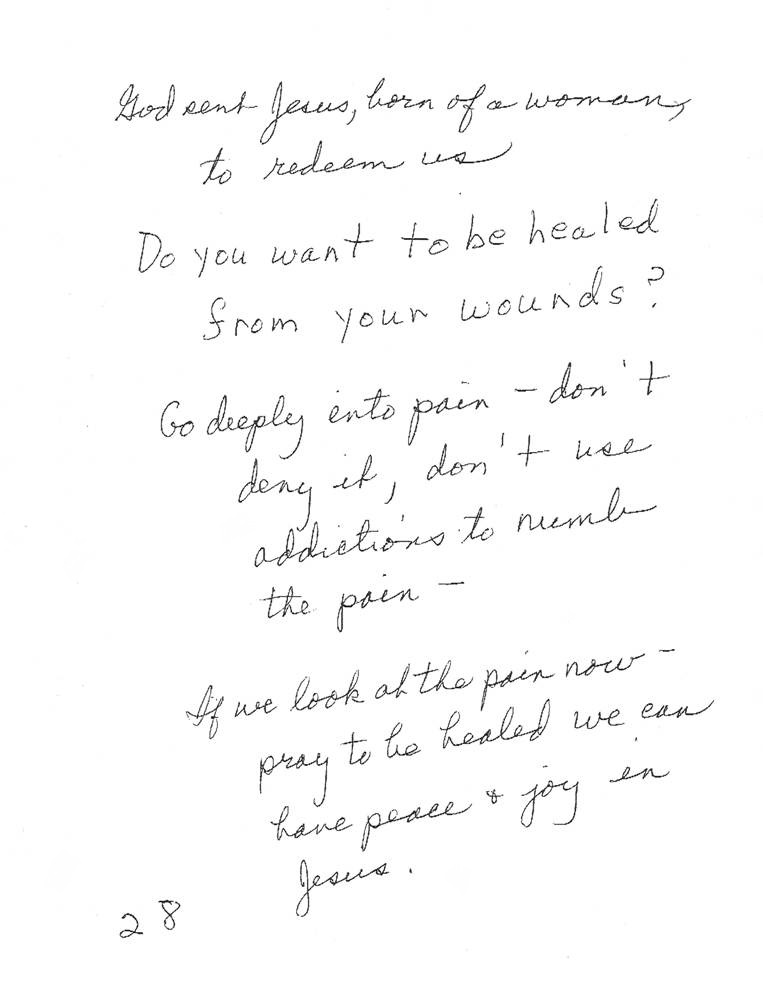 God sent Jesus, born of a woman,
to redeem us
Do you want to be healed
from your wounds?
Go deeply into pain – don't
deny it, don't use
addictions to numb
the pain –
If we look at the pain now –
pray to be healed we can
have peace & joy in
Jesus.
28